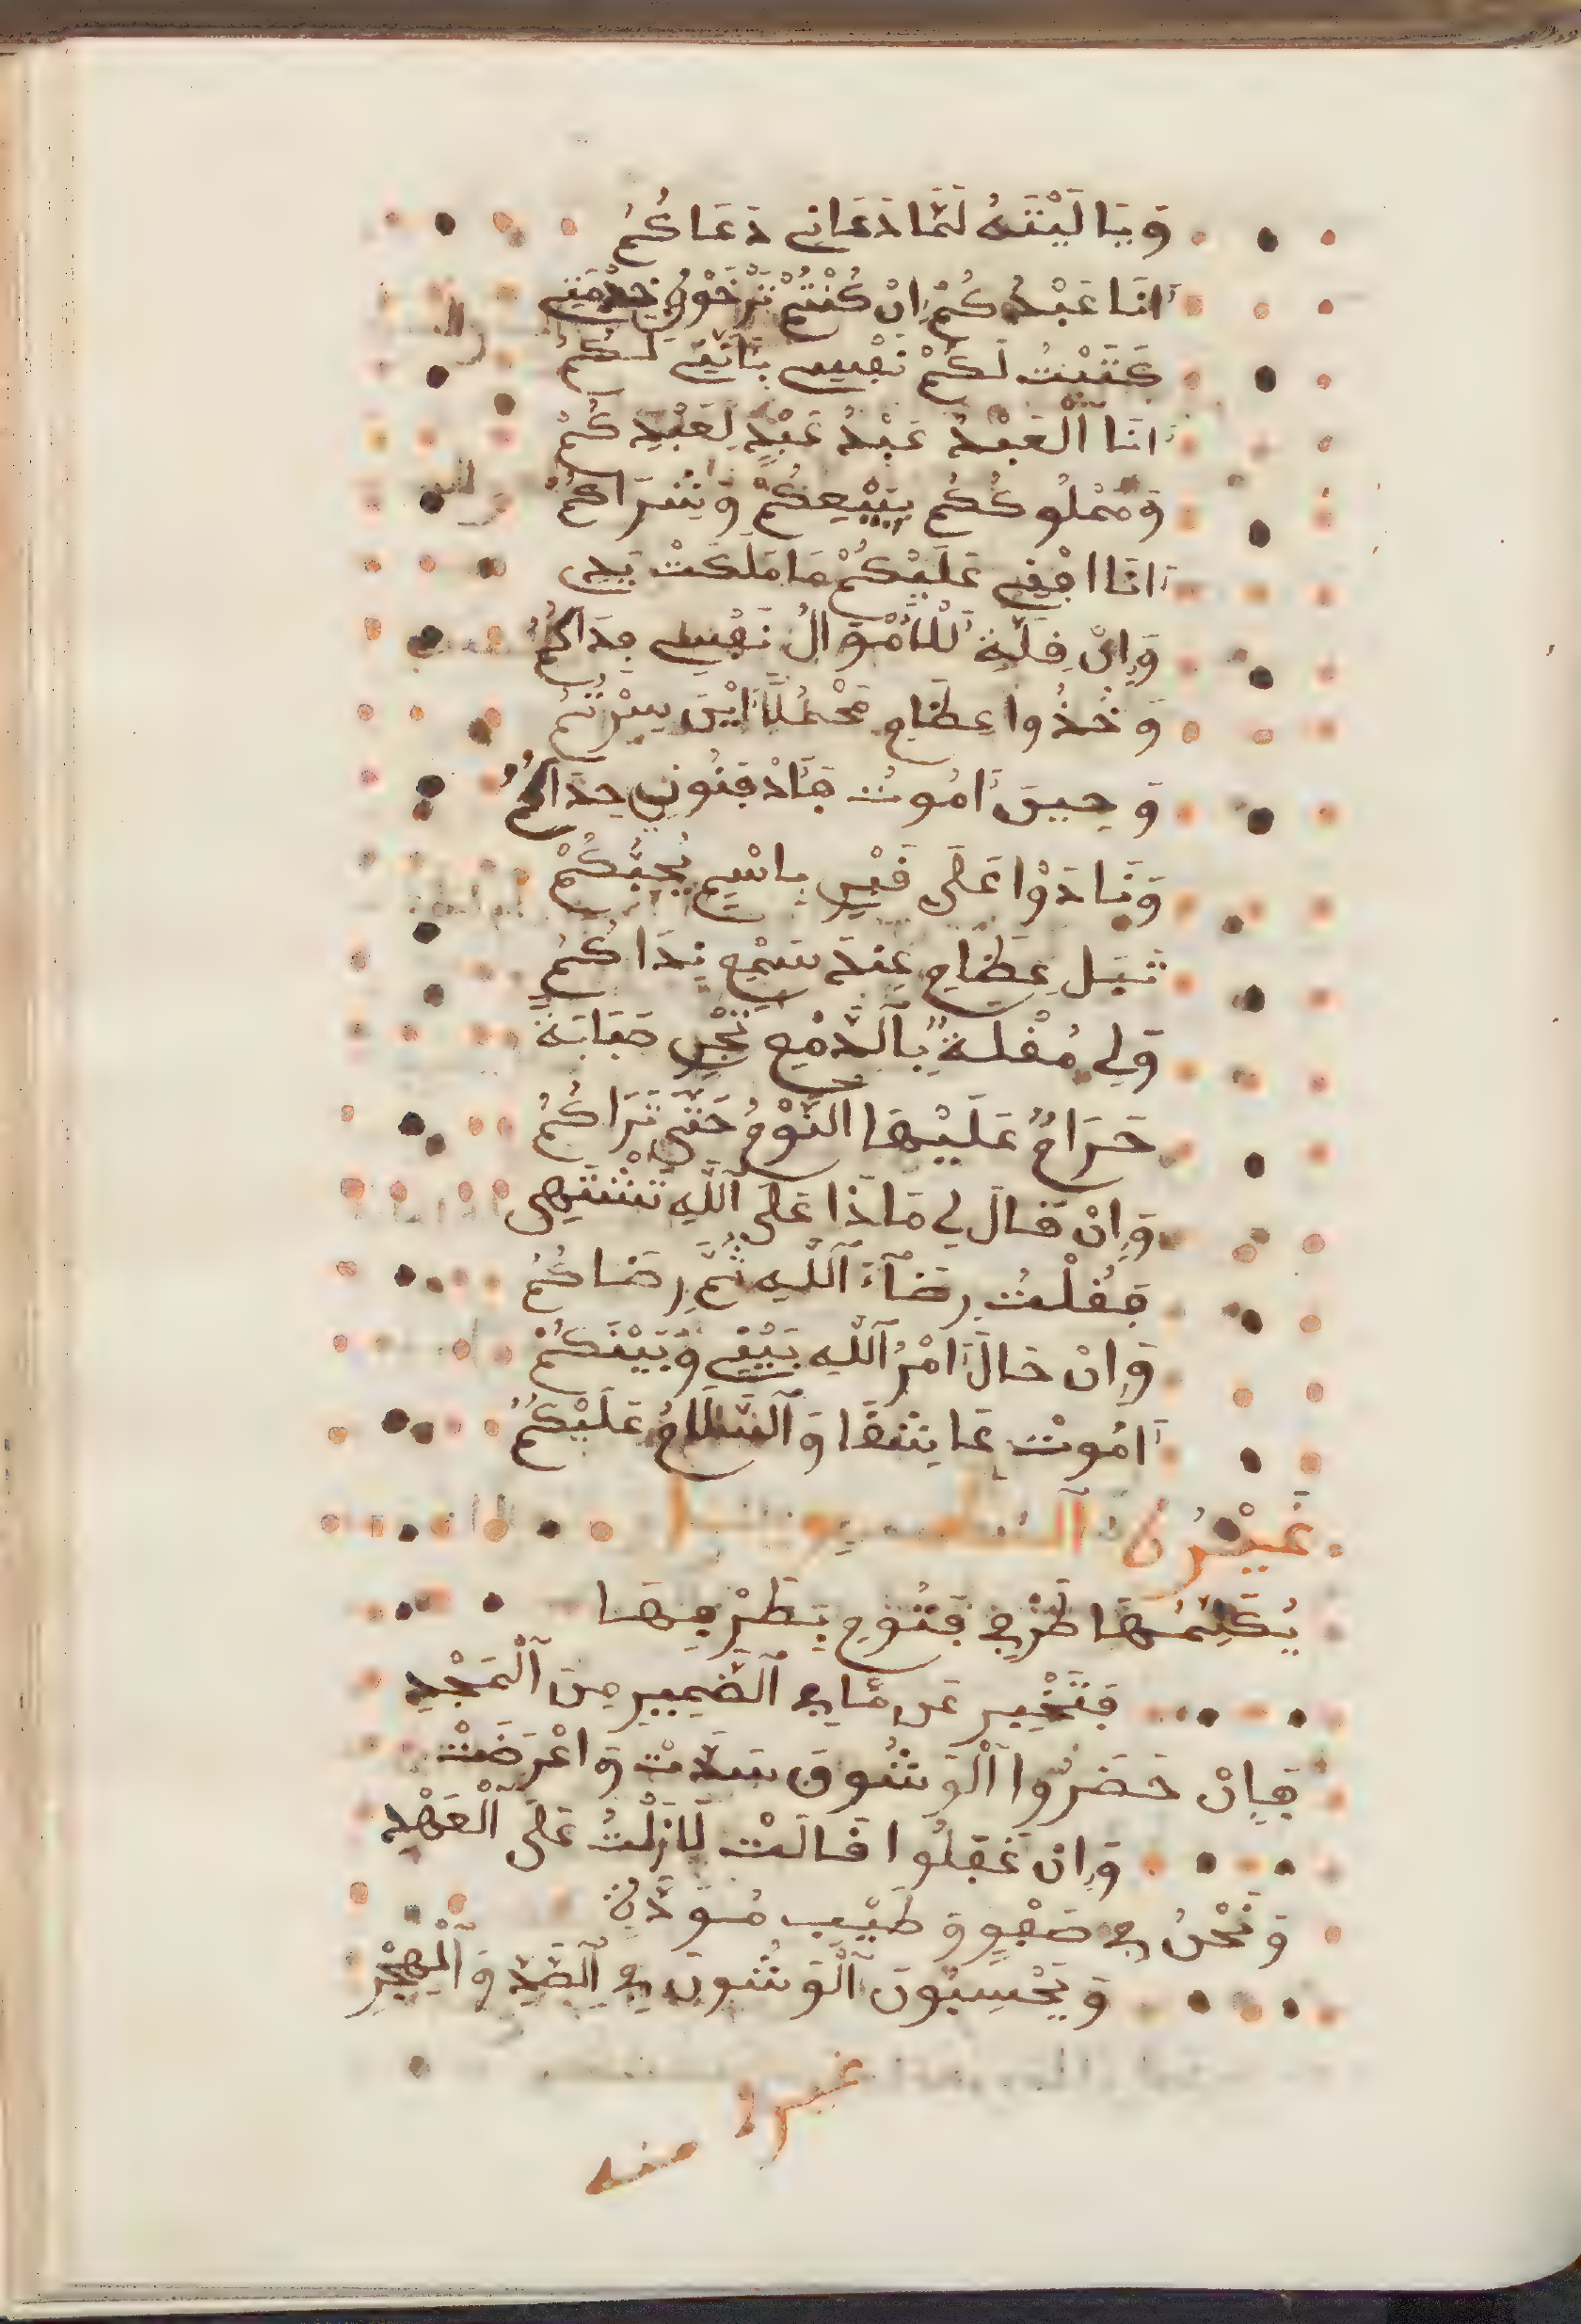 وَيَا لَيْتَهُ لَمَّا دَعَانِي دَعَاكُمُ
أَنَا عَبْدُكُمْ إِنْ كُنْتُمْ تَرْضَوْنَ خِدْمَتِي
كَتَبْتُ لَكُمْ نَفْسِي بِأَنِّي لَكُمُ
أَنَا ٱلْعَبْدُ عَبْدُ عَبْدٍ لِعَبْدِكُمْ
وَمَمْلُوكُكُمْ بِبَيْعِكُمْ وَشِرَاكُمْ
أَنَا افْنِي عَلَيْكُمْ مَا مَلَكَتْ يَدِي
وَإِنْ قِلَّةَ لِلْأَمْوَالُ نَفْسِي فِدَاكُمُ
وَخُذُوا عِظَامِي مَحْمُلًا أَيْنَ سِرْتُمُ
وَحِينَ أَمُوتُ فَأَدْفِنُونِي حِذَاكُمُ
وَنَادَوْا عَلَى قَبْرِي بِاسْمِ يُحِبُّكُمْ
تَبَلِ عِظَامِي عِنْدَ سَمْعِ نِدَاكُمُ
وَلِي مُقْلَةٌ بِٱلدَّمْعِ تَجْرِي صَبَابَةً
حَرَامٌ عَلَيْهَا النَّوْمُ حَتَّى تَرَاكُمُ
وَإِنْ قَالَ لِي مَاذَا عَلَى ٱللَّهِ تَشْتَهِي
فَقُلْتُ رِضَآءَ ٱللَّهِ ثُمَّ رِضَاكُمُ
وَإِنْ حَالَ أَمْرُ ٱللَّهِ بَيْنِي وَبَيْنَكُمْ
أَمُوتُ عَاشِقًا وَٱلسَّلَامُ عَلَيْكُمُ
غَيْرُهُ
يُكَلِّمُهَا طَرْفِي فَتُومِي بِطَرْفِهَا
فَتُخْبِرُ عَن مَّا فِي ٱلضَّمِيرِ مِنَ ٱلْمَجْدِ
فَإِنْ حَضَرُوا ٱلْوَشُونَ سَدَّتْ وَاعْرَضَتْ
وَإِنْ غَفِلُوا قَالَتْ لَازِلْتُ عَلَى ٱلْعَهْدِ
وَنَحْنُ فِي صَفْوٍ وَطَيْبِ مُوَدَّةٍ
وَيَحْسِبُونَ ٱلْوَشُونَ فِي ٱلصَّدِّ وَٱلْهَجْرِ
غيره
منه